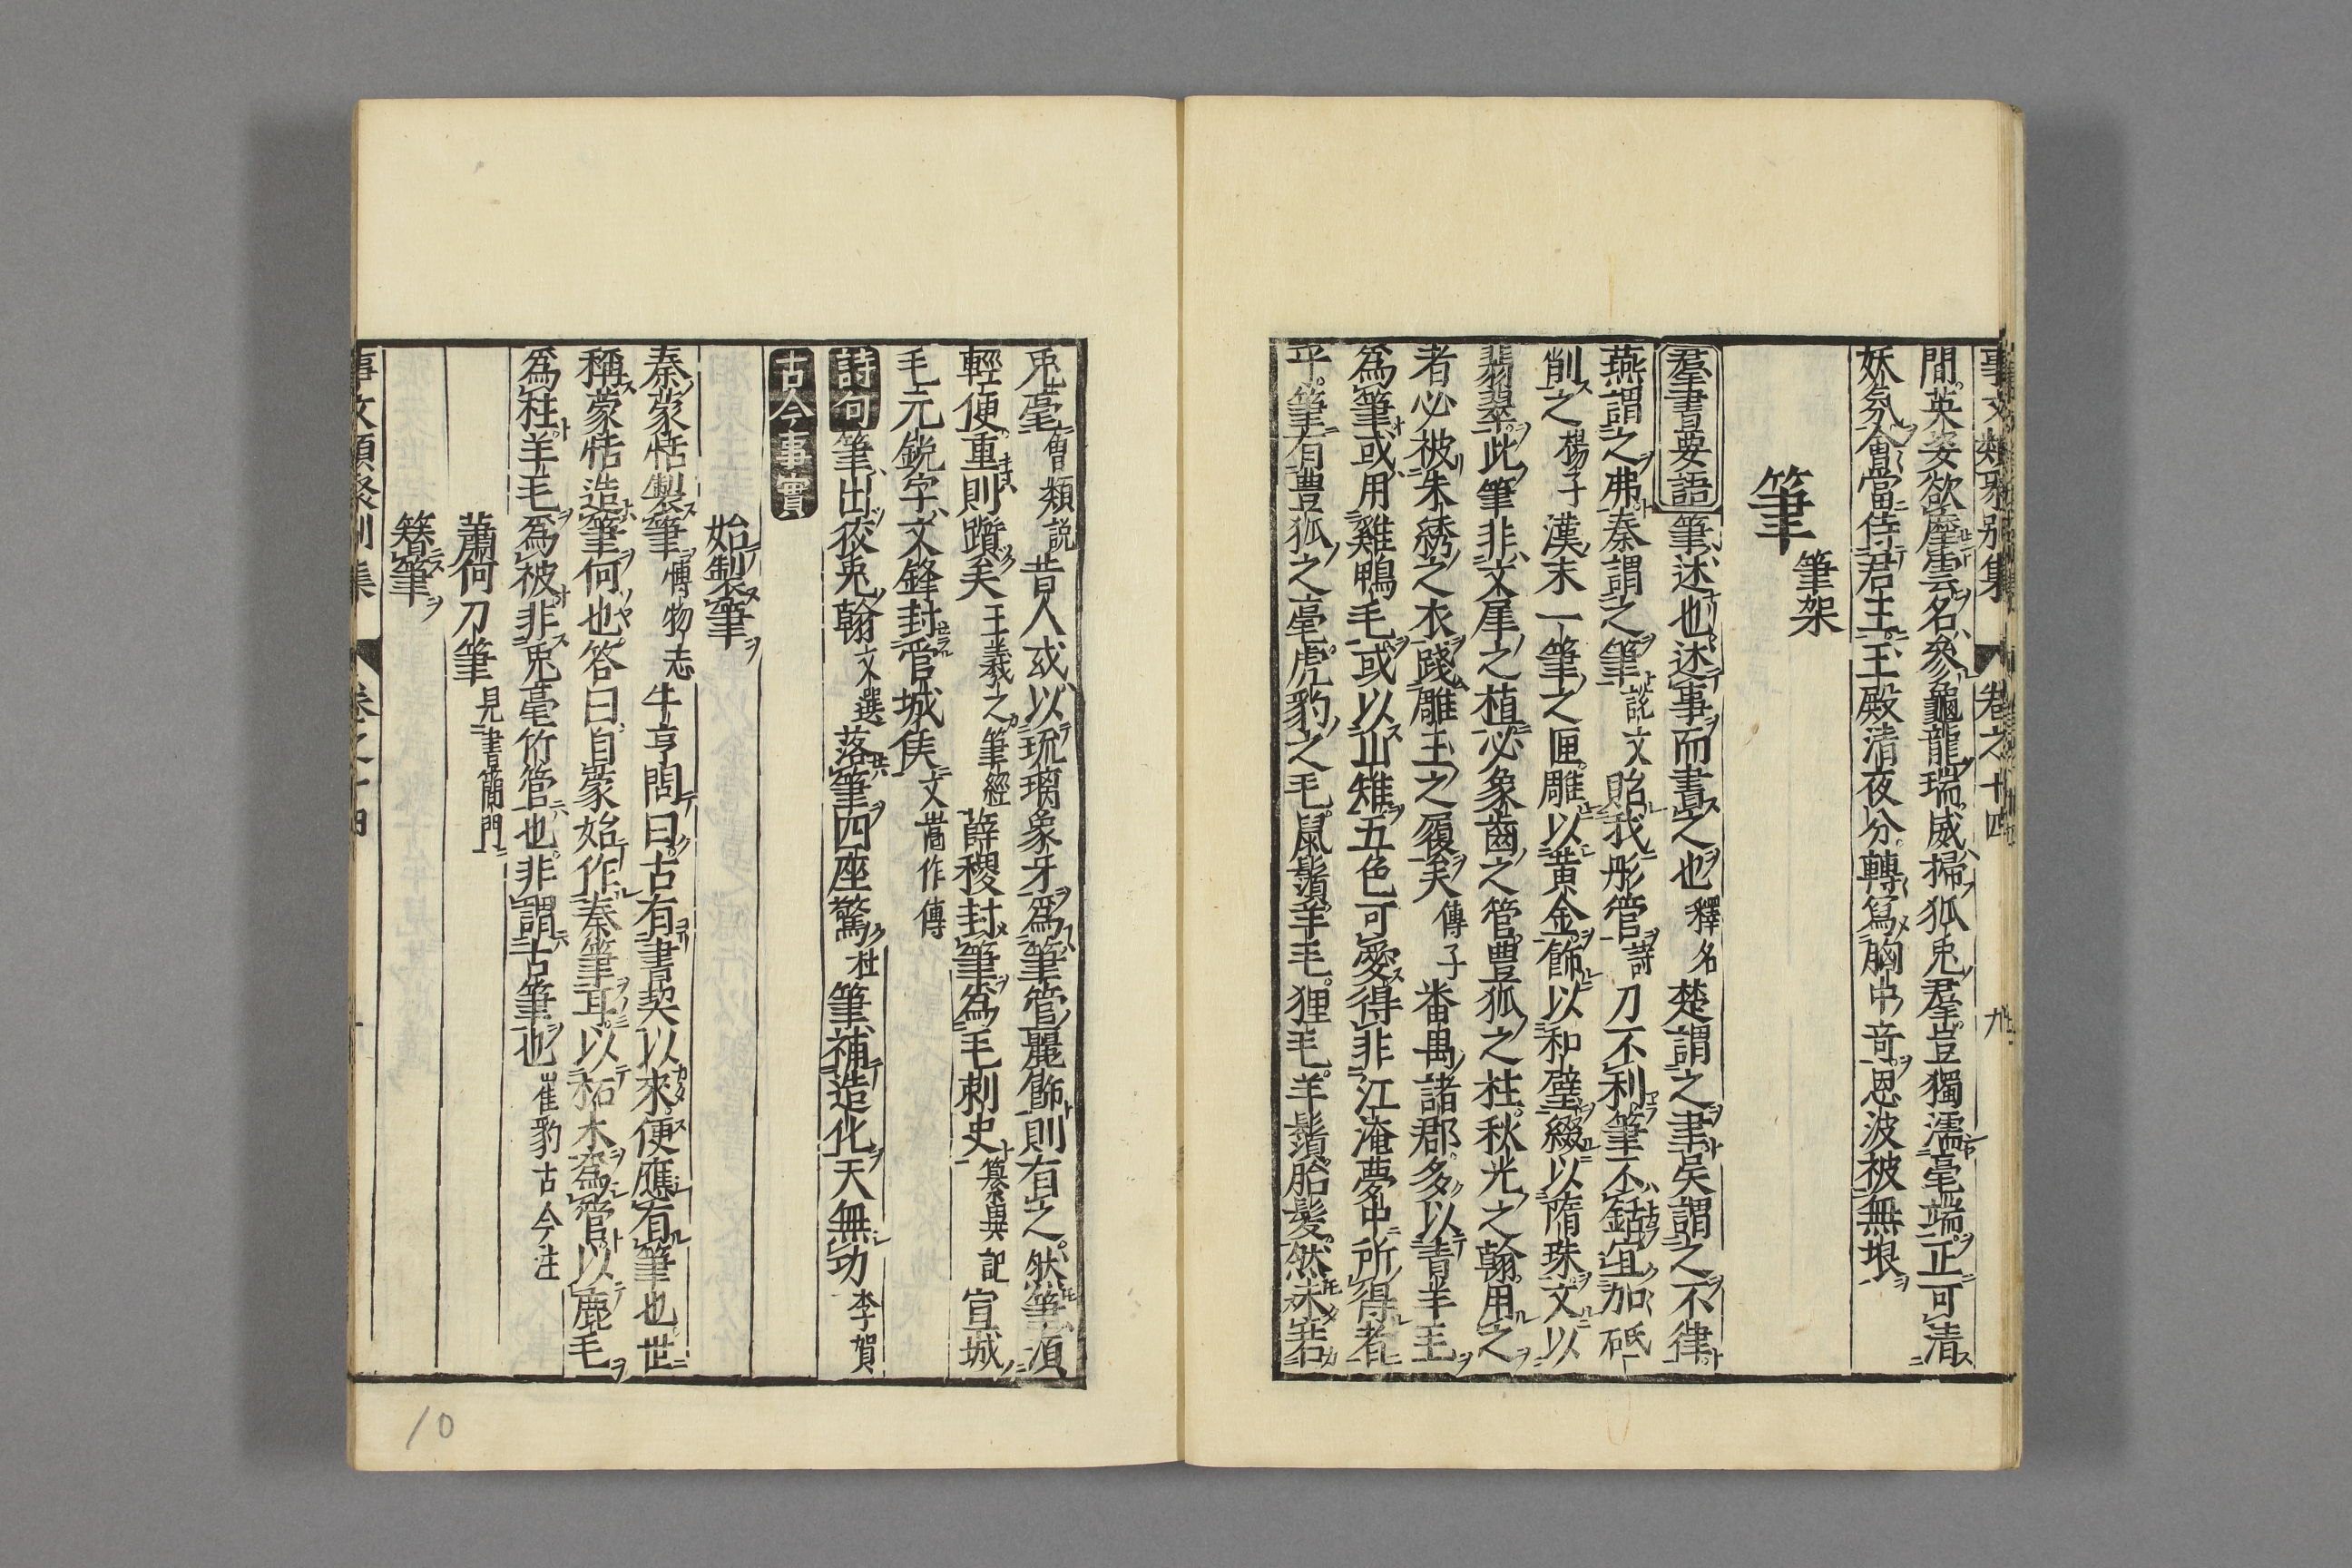 事文類聚别集 卷之十四 九
間英姿欲塵雲名參龜龍瑞威掃狐兎羣豈獨濡毫端正可清
妖氛會當侍君王王殿清夜分轉寫胸中竒恩波被無垠
筆 筆架
羣書要語 筆述也述事而書之也 釋名 楚謂之聿吳謂之不律
燕謂之弗秦謂之筆 説文 貽我彤管 詩 刀不利筆不銛宜加砥
削之 楊子 漢末一筆之匣雕以黄金飾以和璧綴以隋珠文以
翡翠此筆非文犀之植必象齒之管豊狐之柱秋光之翰用之
者必被朱綉之衣踐雕玉之履矣 傳子 番禺諸郡多以青羊毛
為筆或用雞鴨毛或以山雉五色可愛得非江淹夢中所得者
乎筆有豊狐之毫虎豹之毛鼠鬚羊毛狸毛羊鬚胎髮然未若
兎毫 曾類說 昔人或以琉璃象牙為筆管麗飾則有之然筆須
輕便重則躓矣 王羲之筆經 薛稷封筆為毛刺史 纂異記 宣城
毛元鋭字文鋒封管城侯 文嵩作傳
詩句 筆出狡兎翰 文選 落筆四座驚 杜 筆補造化天無功 李賀
古今事實
始製筆
秦蒙恬製筆 博物志 牛亨問曰古有書契以來便應有筆也世
稱蒙恬造筆何也答曰自蒙始作秦筆耳以柘木為管以鹿毛
為柱羊毛為被非兎毫竹管也非謂古筆也 崔豹古今注
蕭何刀筆 見書簡門
簪筆
事文類聚別集 卷之十四
10